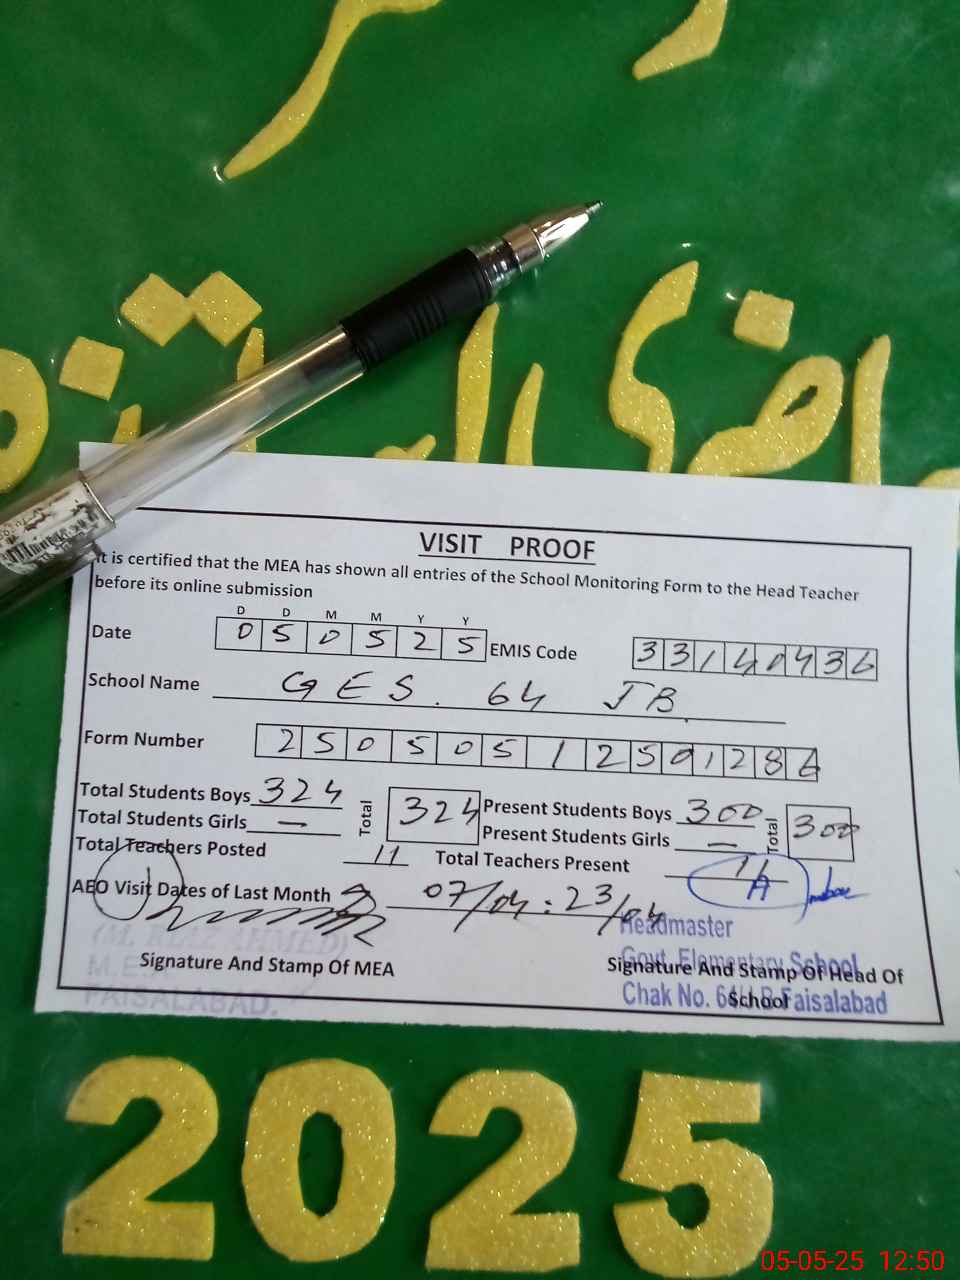 VISIT PROOF
It is certified that the MEA has shown all entries of the School Monitoring Form to the Head Teacher
before its online submission
D D M M Y Y
Date 0 5 0 5 2 5 EMIS Code 3 3 1 4 0 4 3 6
School Name GES. 64 JB
Form Number 2 5 0 5 0 5 1 2 5 0 1 2 8 6
Total Students Boys 324 Total 324 Present Students Boys 300 Total 300
Total Students Girls — Present Students Girls —
Total Teachers Posted 11 Total Teachers Present 11
AEO Visit Dates of Last Month 07/04 : 23/04
(M. RIAZ AHMED)
FAISALABAD.
Signature And Stamp Of MEA
Headmaster
Govt. Elementary School
Signature And Stamp Of Head Of
School
Chak No. 64 J.B Faisalabad
2025
05-05-25 12:50